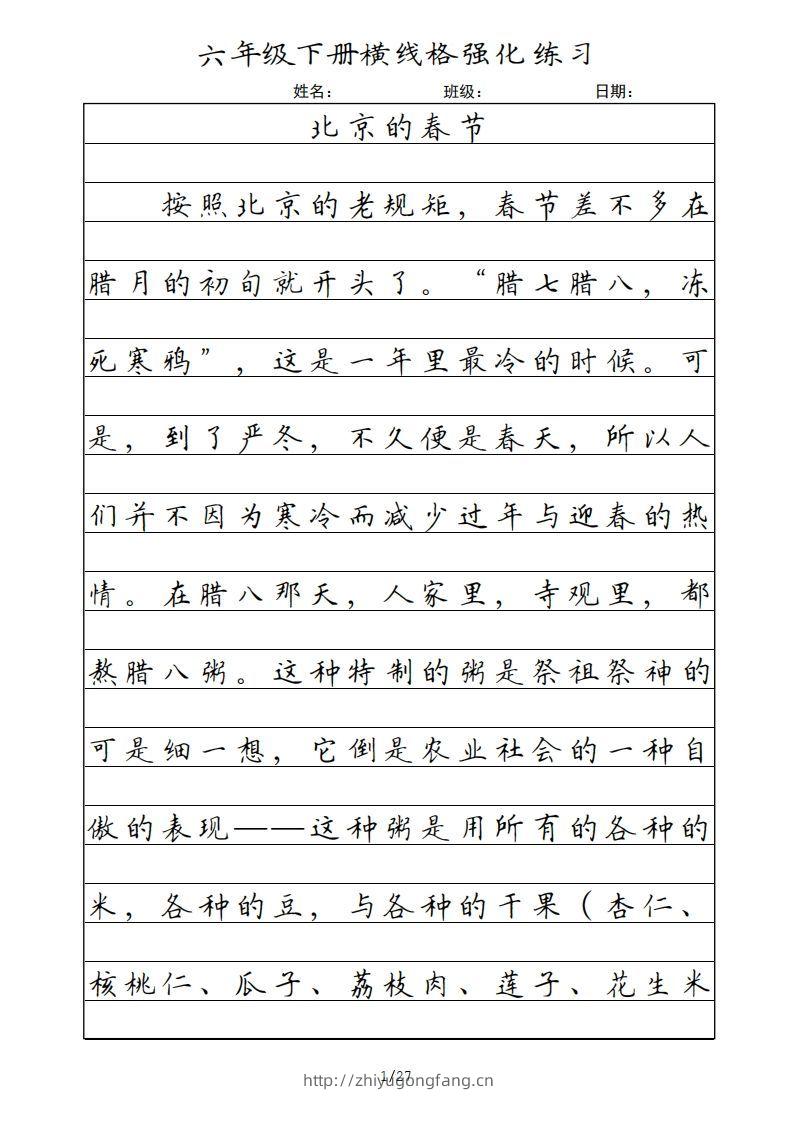 六年级下册横线格强化练习
姓名： 班级： 日期：
北京的春节
按照北京的老规矩，春节差不多在
腊月的初旬就开头了。“腊七腊八，冻
死寒鸦”，这是一年里最冷的时候。可
是，到了严冬，不久便是春天，所以人
们并不因为寒冷而减少过年与迎春的热
情。在腊八那天，人家里，寺观里，都
熬腊八粥。这种特制的粥是祭祖祭神的
可是细一想，它倒是农业社会的一种自
傲的表现——这种粥是用所有的各种的
米，各种的豆，与各种的干果（杏仁、
核桃仁、瓜子、荔枝肉、莲子、花生米
1/27
http://zhiyugongfang.cn